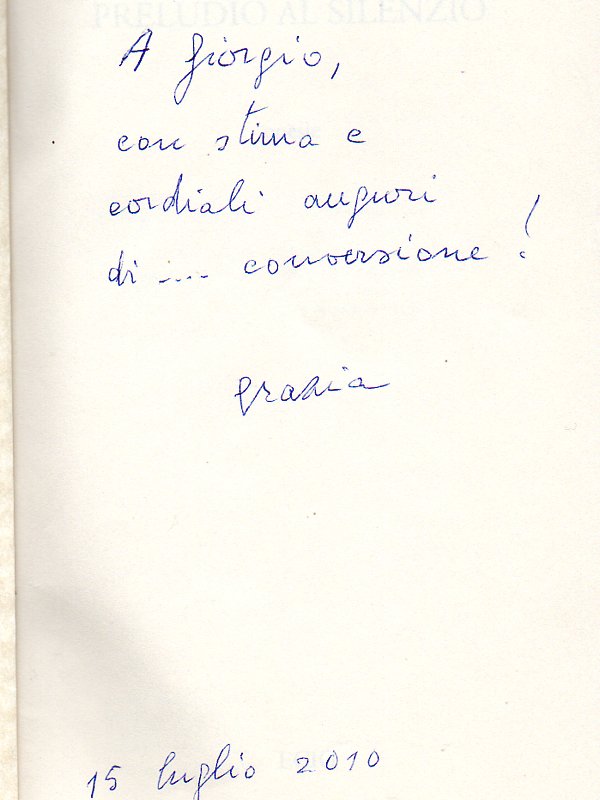 PRELUDIO AL SILENZIO
A Giorgio,
con stima e
cordiali auguri
di .... conversione !
Grazia
15 luglio 2010